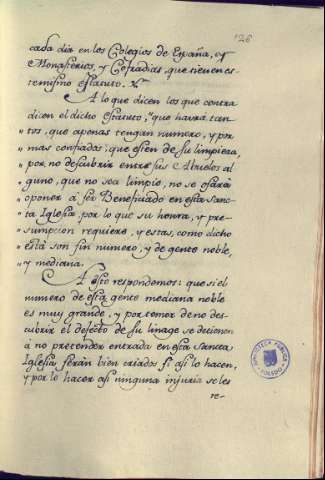 126
cada dia en los Colegios de España, y
Monasterios, y Cofradias, que tienen es-
te mismo estatuto.
A lo que dicen los que contra
dicen el dicho Estatuto, "que havrá tan-
"tos, que apenas tengan numero, y por
"mas confiados, que esten de su limpieza,
"por no descubrir entre sus Abuelos al-
"guno, que no sea limpio, no se osará
"oponer á ser Beneficiado en esta Sanc-
"ta Iglesia, por lo que su honra, y pre-
"sumpcion requiere, y estas, como dicho
"está son sin numero, y de gente noble,
"y mediana.
A esto respondemos: que si el
numero de esta gente mediana noble
es muy grande, y por temor de no des-
cubrir el defecto de su linage se detienen
á no pretender entrada en esta Sancta
Iglesia serán bien criados si asi lo hacen,
y por lo hacer asi ninguna injuria se les
re-
BIBLIOTECA PUBLICA
TOLEDO